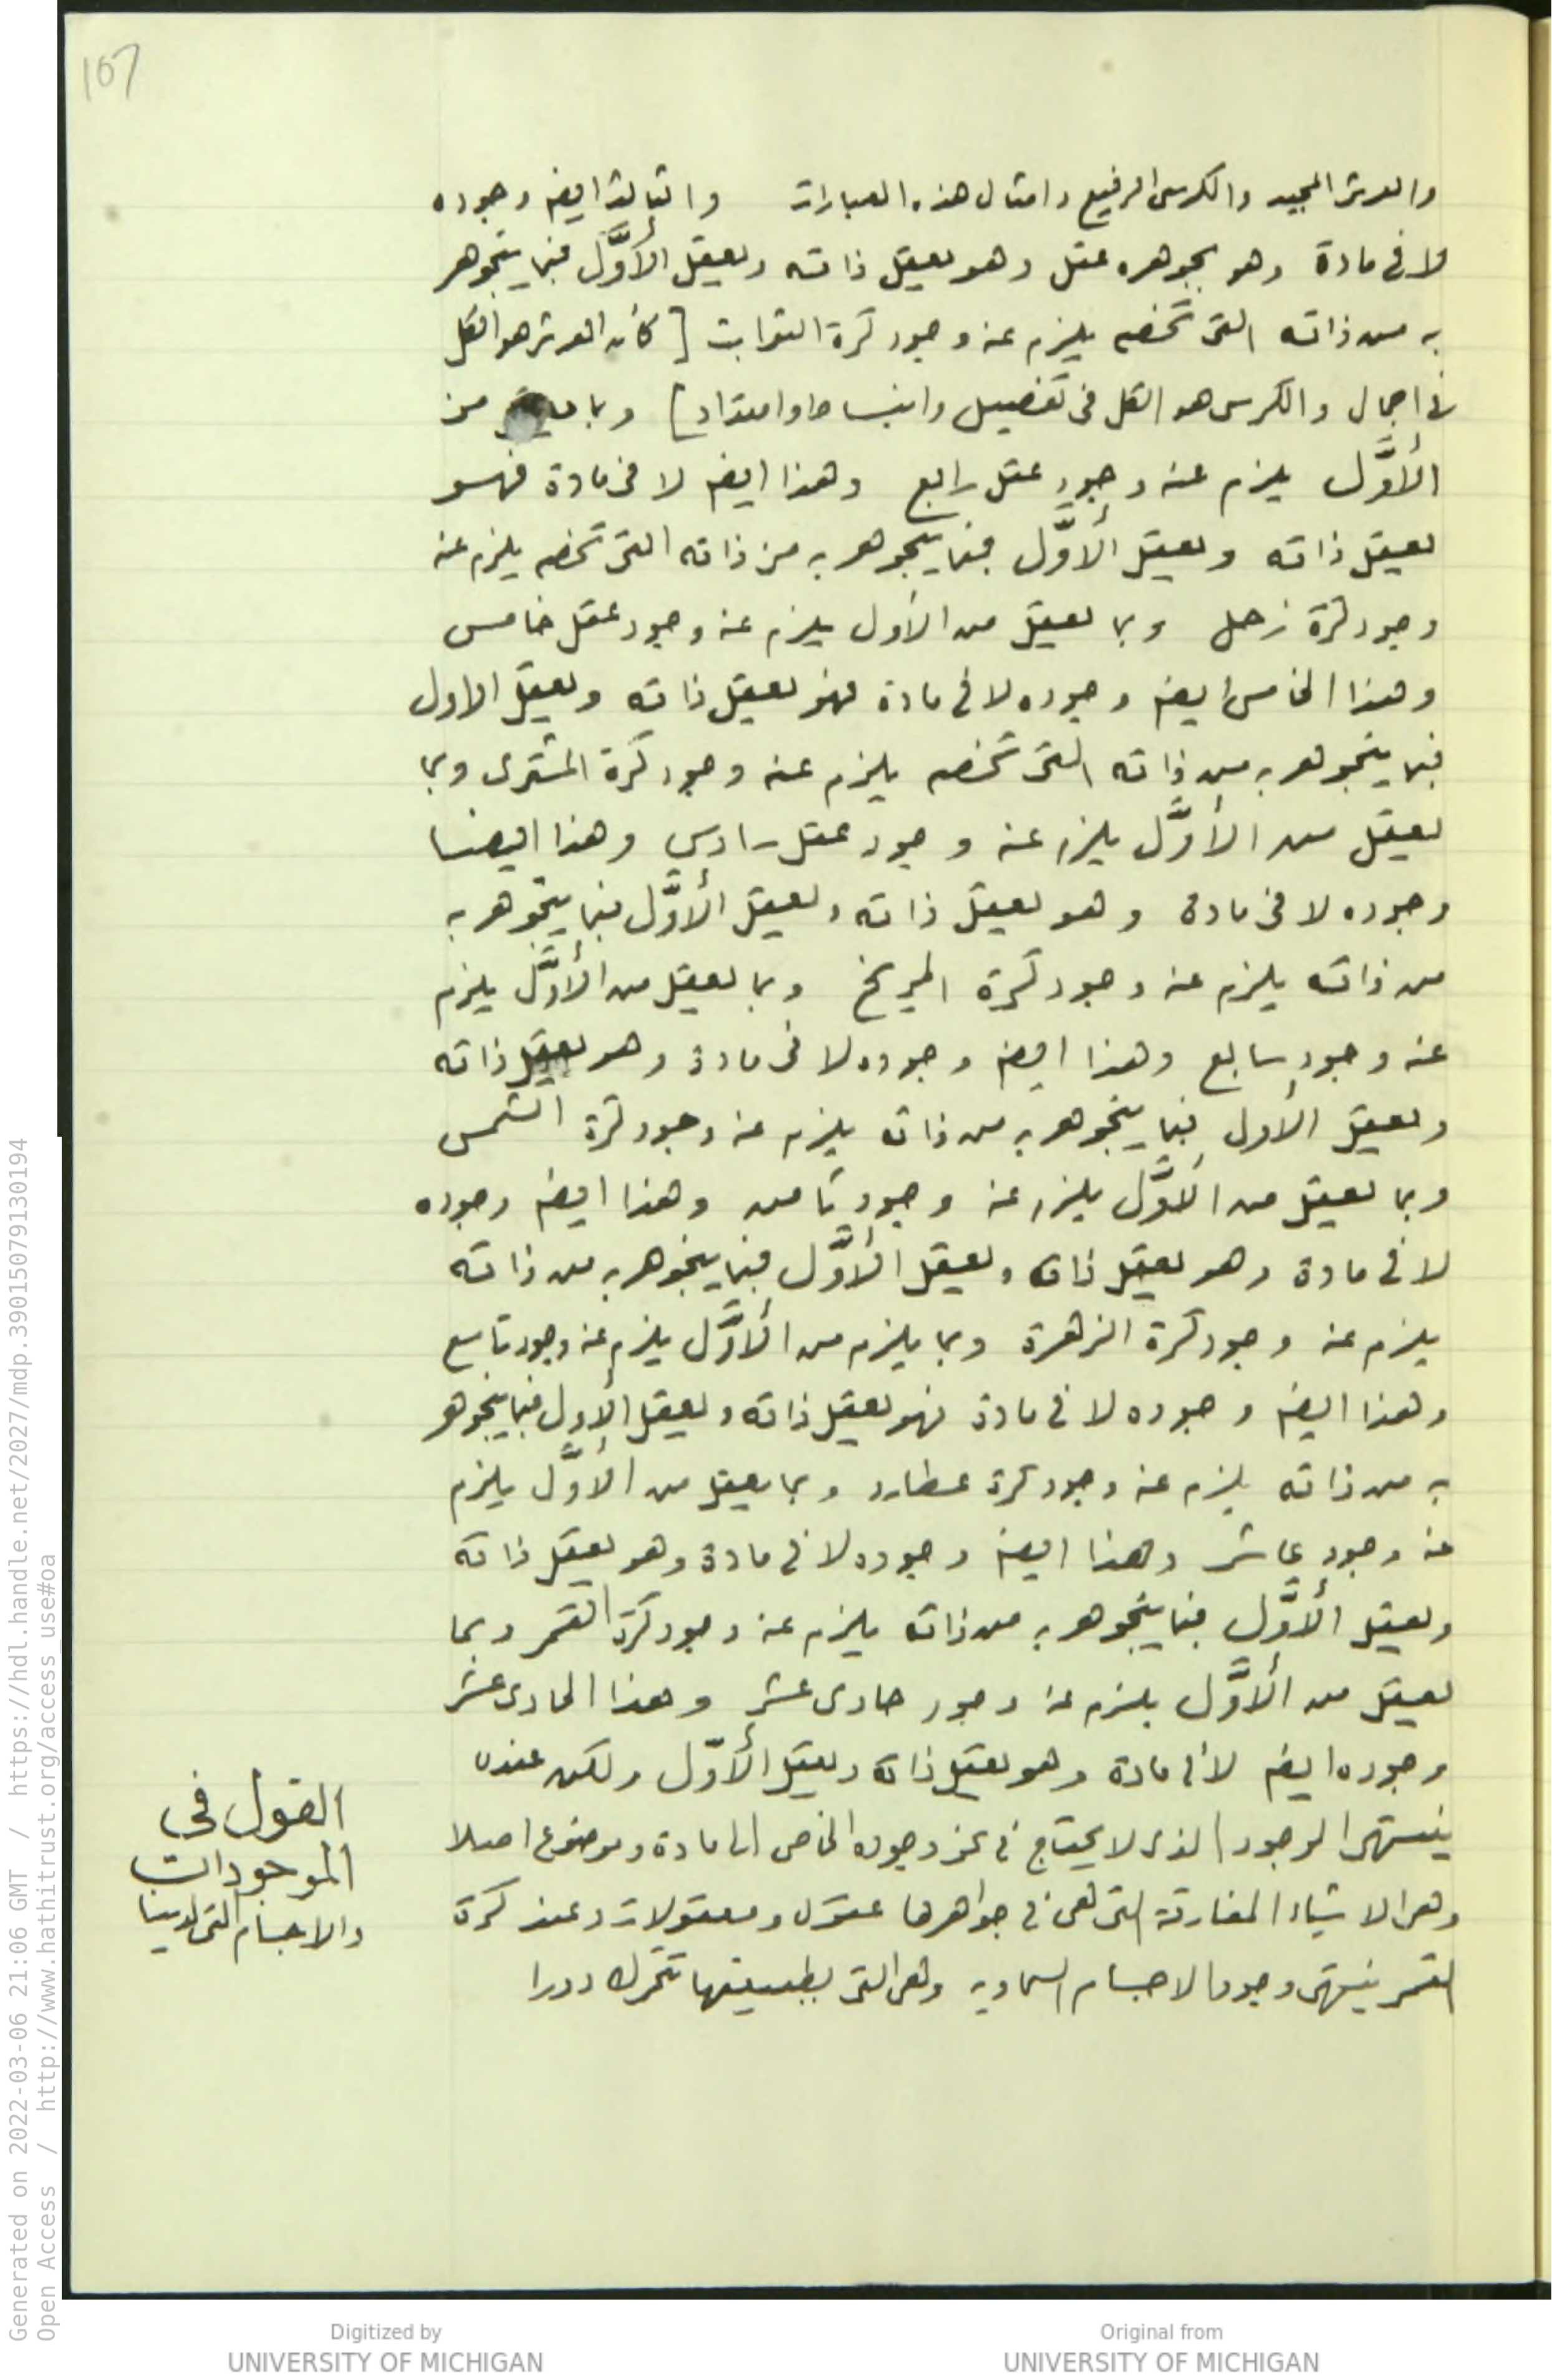 107
والعرش المجيد والكرسى الرفيع وامثال هذه العبارات والثالث ايضا وجوده
لا فى مادة وهو بجوهره عقل وهو يعقل ذاته ويعقل الأوَّل فبما يتجوهر
به من ذاته التى تخصه يلزم عنه وجود كرة الثوابت [كان العرش هو الكل
فى اجمال والكرسى هو الكل فى تفصيل وانبساط وامتداد] وبما يعقل من
الأوَّل يلزم عنه وجود عقل رابع وهذا ايضا لا فى مادة فهو
يعقل ذاته ويعقل الأوَّل فبما يتجوهر به من ذاته التى تخصه يلزم عنه
وجود كرة زحل وبما يعقل من الأول يلزم عنه وجود عقل خامس
وهذا الخامس ايضا وجوده لا فى مادة فهو يعقل ذاته ويعقل الاول
فبما يتجوهر به من ذاته التى تخصه يلزم عنه وجود كرة المشترى وبما
يعقل من الأوَّل يلزم عنه وجود عقل سادس وهذا ايضا
وجوده لا فى مادة وهو يعقل ذاته ويعقل الأوَّل فبما يتجوهر به
من ذاته يلزم عنه وجود كرة المريخ وبما يعقل من الأوَّل يلزم
عنه وجود سابع وهذا ايضا وجوده لا فى مادة وهو يعقل ذاته
ويعقل الأول فبما يتجوهر به من ذاته يلزم عنه وجود كرة الشمس
وبما يعقل من الأوَّل يلزم عنه وجود ثامن وهذا ايضا وجوده
لا فى مادة وهو يعقل ذاته ويعقل الأوَّل فبما يتجوهر به من ذاته
يلزم عنه وجود كرة الزهرة وبما يلزم من الأوَّل يلزم عنه وجود تاسع
وهذا ايضا وجوده لا فى مادة فهو يعقل ذاته ويعقل الأول فبما يتجوهر
به من ذاته يلزم عنه وجود كرة عطارد وبما يعقل من الأوَّل يلزم
عنه وجود عاشر وهذا ايضا وجوده لا فى مادة وهو يعقل ذاته
ويعقل الأوَّل فبما يتجوهر به من ذاته يلزم عنه وجود كرة القمر وبما
يعقل من الأوَّل يلزم عنه وجود حادى عشر وهذا الحادى عشر
وجوده ايضا لا فى مادة وهو يعقل ذاته ويعقل الأوَّل ولكن عنده
ينتهى الوجود الذى لا يحتاج فى نحو وجوده الخاص الى مادة وموضوع اصلا
وهى الاشياء المفارقة التى هى فى جواهرها عقول ومعقولات وعند كرة
القمر ينتهى وجود الاجسام السماويه وهى التى بطبيعتها تتحرك دورا
القول فى
الموجودات
والاجسام التى لدينا
Generated on 2022-03-06 21:06 GMT / https://hdl.handle.net/2027/mdp.39015079130194
Open Access / http://www.hathitrust.org/access_use#oa
Digitized by
UNIVERSITY OF MICHIGAN
Original from
UNIVERSITY OF MICHIGAN